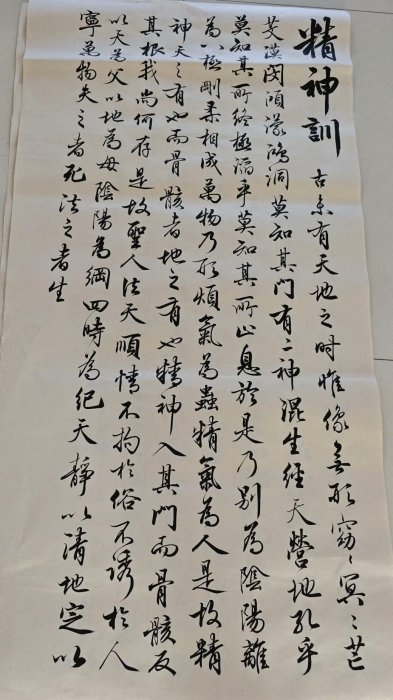 精神訓 古未有天地之時惟像無形窈〻冥〻芒
芠漠閔澒濛鴻洞莫知其門有二神混生經天營地孔乎
莫知其所終極滔乎莫知其所止息於是乃別為陰陽離
為八極剛柔相成萬物乃形煩氣為蟲精氣為人是故精
神天之有也而骨骸者地之有也精神入其門而骨骸反
其根我尚何存是故聖人法天順情不拘於俗不誘於人
以天為父以地為母陰陽為綱四時為紀天靜以清地定以
寧萬物失之者死法之者生